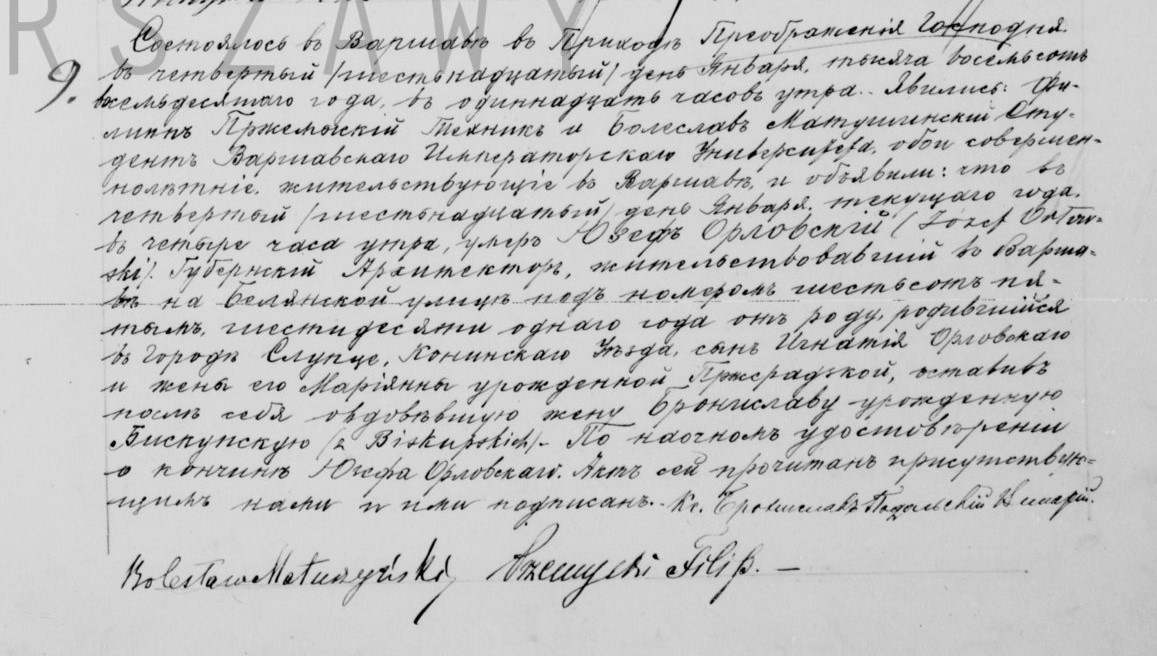 RSZAWY
9.
Состоялось въ Варшавѣ въ Приходѣ Преображенія Господня
въ четвертый /шестьнадцатый/ день Января, тысяча восемьсотъ
восемьдесятаго года, въ одиннадцать часовъ утра. Явились: Фи-
липпъ Пржемыскій Техникъ и Болеславъ Матушинскій Сту-
дентъ Варшавскаго Императорскаго Университета, обои совершен-
нолѣтніе, жительствующіе въ Варшавѣ, и объявили: что въ
четвертый /шестьнадцатый/ день Января, текущаго года
въ четыре часа утра, умеръ Юзефъ Орловскій (Józef Orłow-
ski/. Губернскій Архитекторъ, жительствовавшій въ Варша-
вѣ на Белянской улицѣ подъ номеромъ шестьсотъ пя-
тымъ, шестидесяти однаго года отъ роду, родившійся
въ городѣ Слупце, Конинскаго Уѣзда, сынъ Игнатія Орловскаго
и жены его Маріянны урожденной, оставивъ
послѣ себя овдовѣвшую жену Брониславу урожденную
Бискупскую /z Biskupskich/- По наочномъ удостовѣреніи
о кончинѣ Юзефа Орловскаго. Актъ сей прочитанъ присутствую-
щимъ нами и ими подписанъ.- Кс. Брониславъ Подольскій
Bolesław Matuszyński, Przemyski Filip. —